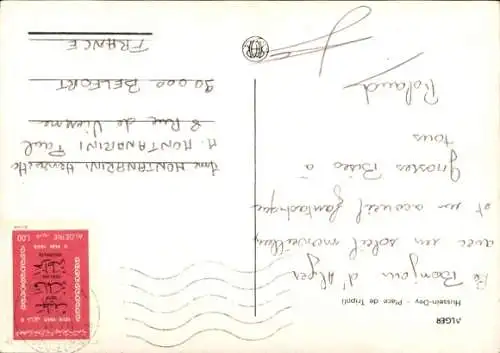 ALGER
Hussein-Dey - Place de Tripoli
Bonjour d'Alger
avec un soleil merveilleux
et un accueil fantastique
Grosses Bises à
tous
Roland
Mme MONTANARINI Henriette
M. MONTANARINI Paul
8 Rue de Vienne
90.000 BELFORT
FRANCE
ALGERIE
1,00